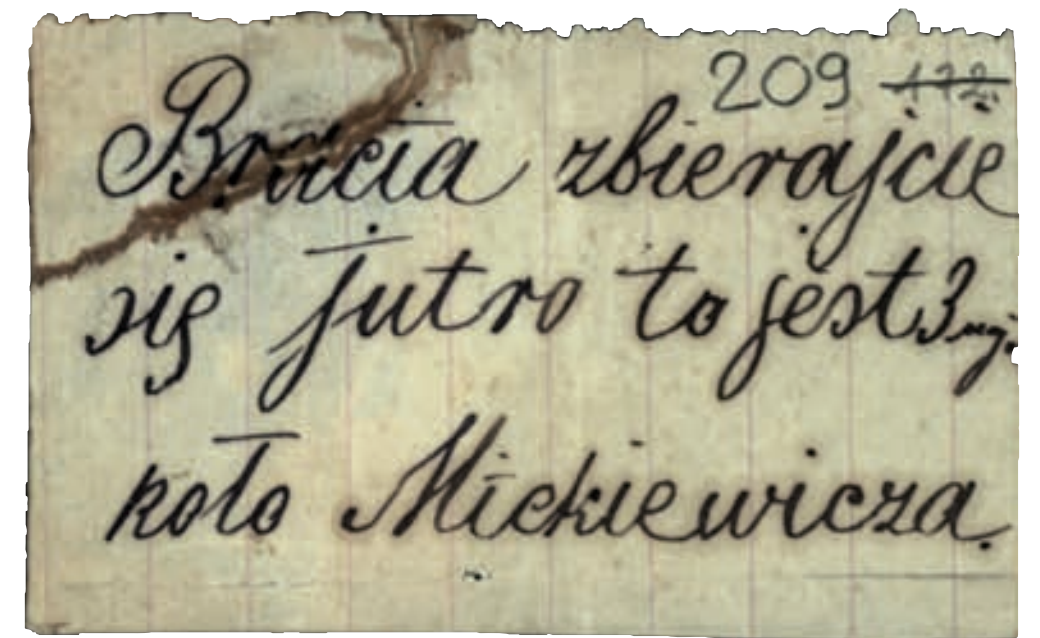 209 172.
Bracia zbierajcie
się jutro to jest 3 maj.
koło Mickiewicza.